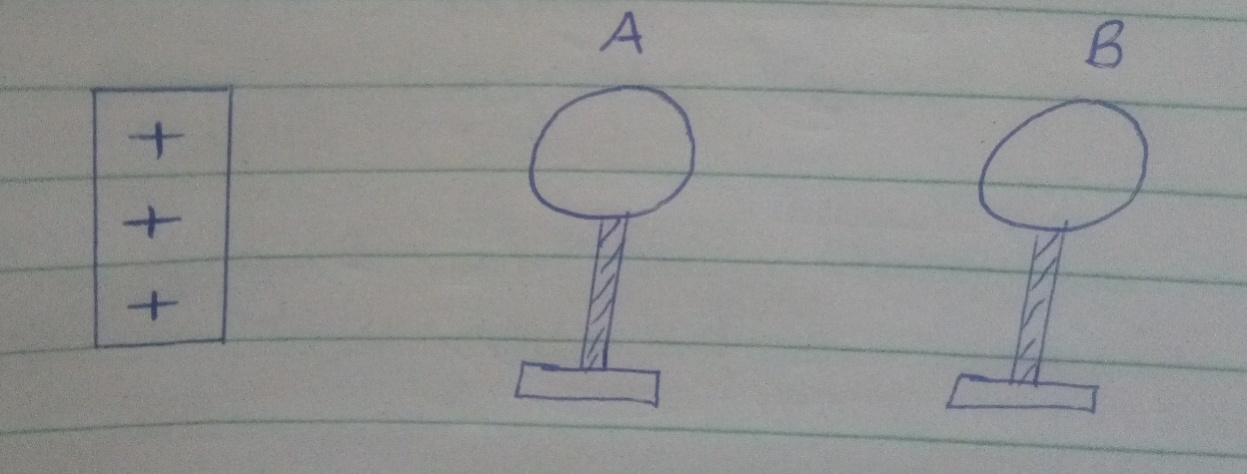 A B
+
+
+